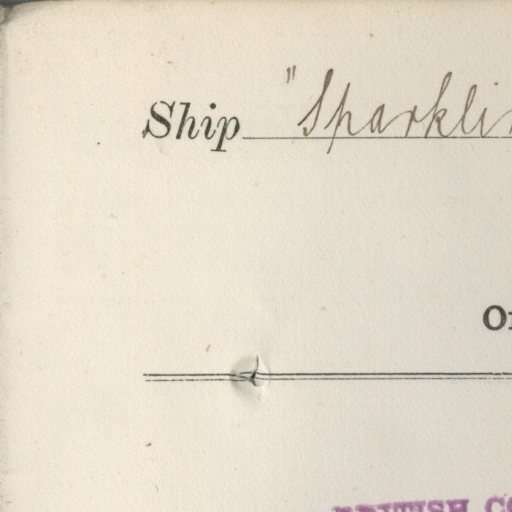 Ship "Sparklin
Or
BRITISH CO